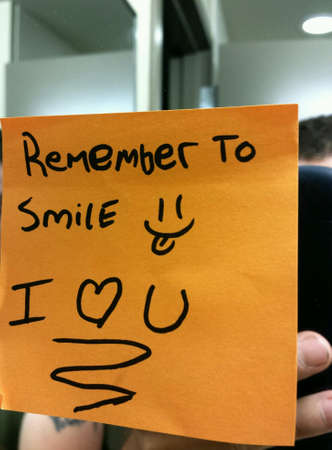 Remember To
Smile
I ♡ U